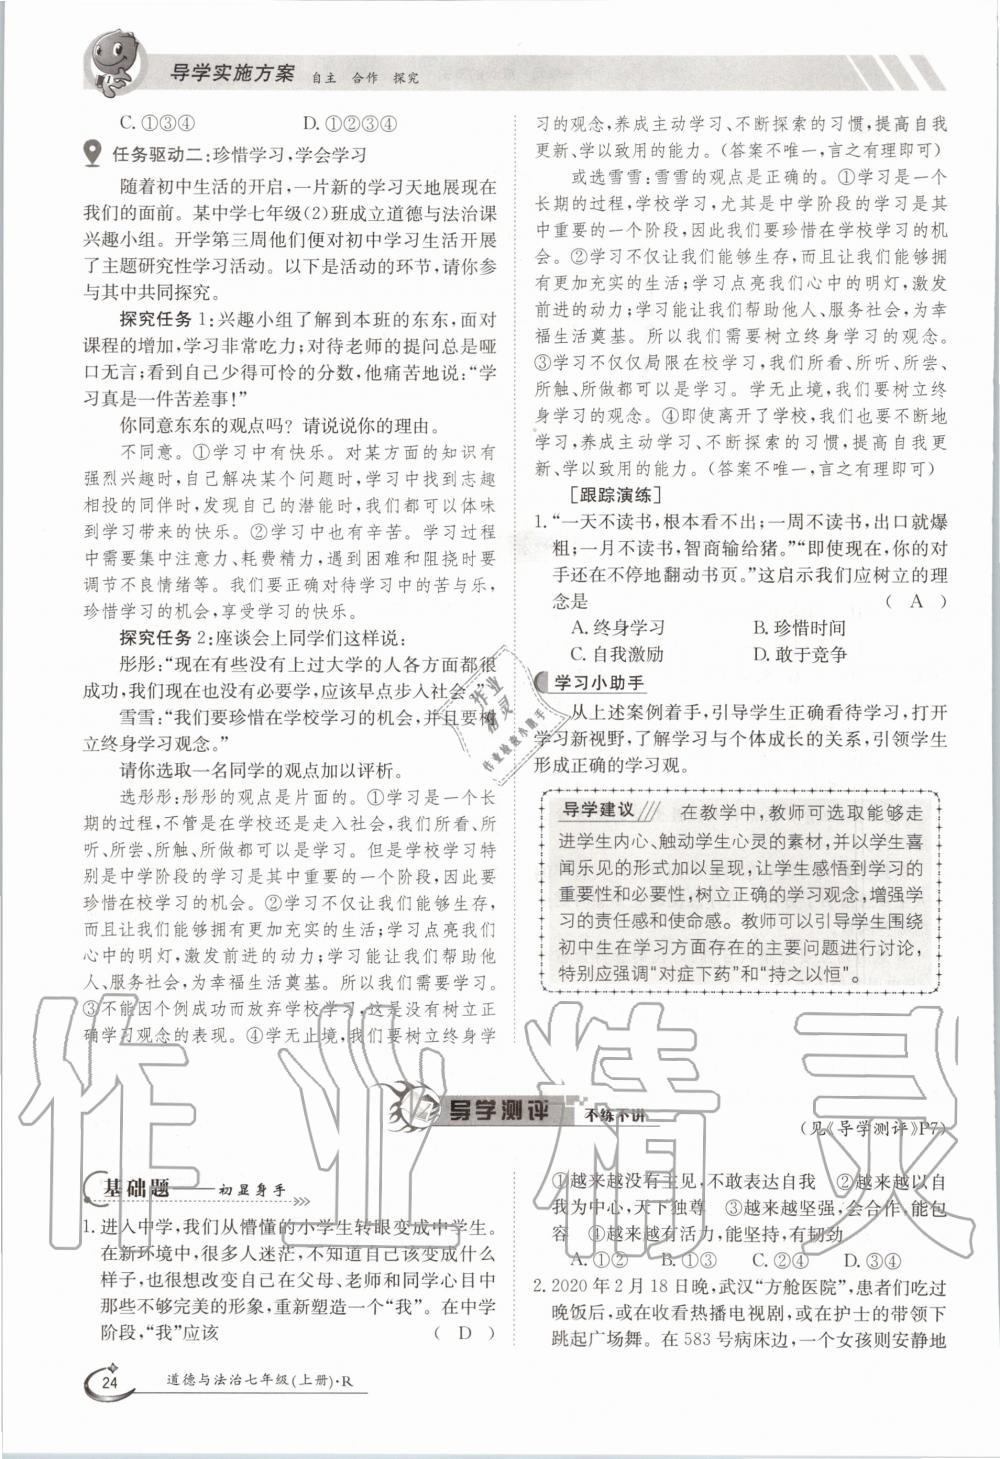 导学实施方案 自主 合作 探究
C.①③④ D.①②③④
任务驱动二:珍惜学习,学会学习
随着初中生活的开启,一片新的学习天地展现在
我们的面前。某中学七年级(2)班成立道德与法治课
兴趣小组。开学第三周他们便对初中学习生活开展
了主题研究性学习活动。以下是活动的环节,请你参
与其中共同探究。
探究任务1:兴趣小组了解到本班的东东,面对
课程的增加,学习非常吃力;对待老师的提问总是哑
口无言;看到自己少得可怜的分数,他痛苦地说:“学
习真是一件苦差事!”
你同意东东的观点吗？请说说你的理由。
不同意。①学习中会有快乐。对某方面的知识有
强烈兴趣时,学习中自己解决某个问题时,学习中找到志趣
相投的同伴时,发现自己的潜能时,我们都可以体味
到学习带来的快乐。②学习中也有辛苦。学习过程
中需要集中注意力、耗费精力,遇到困难和阻挠时要
调节不良情绪等。我们要正确对待学习中的苦与乐,
珍惜学习的机会,享受学习的快乐。
探究任务2:座谈会上同学们这样说:
彤彤:“现在有些没有上过大学的人各方面都很
成功,我们已经没有必要学,应该早点步入社会。”
雪雪:“我们要珍惜在学校学习的机会,并且要树
立终身学习观念。”
请你选取一名同学的观点加以评析。
选彤彤:彤彤的观点是片面的。①学习是一个长
期的过程,不管是在学校还是走入社会,我们所看、所
听、所尝、所触、所做都可以是学习。但是学校学习特
别是中学阶段的学习是其中重要的一个阶段,因此要
珍惜在学校学习的机会。②学习不仅让我们能够生
存,而且让我们能够拥有更加充实的生活;学习点亮我们
心中的明灯,激发前进的动力;学习能让我们帮助他
人、服务社会,为幸福生活奠基。所以我们要珍惜学习。
③不能因个例成功而放弃学校学习,这是没有树立正
确学习观念的表现。④学无止境,我们要树立终身学
习的观念,养成主动学习、不断探索的习惯,提高自我
更新、学以致用的能力。(答案不唯一,言之有理即可)
或选雪雪:雪雪的观点是正确的。①学习是一个
长期的过程,学校学习,尤其是中学阶段的学习是其
中重要的一个阶段,因此我们要珍惜在学校学习的机
会。②学习不仅让我们能够生存,而且让我们能够拥
有更加充实的生活;学习点亮我们心中的明灯,激发
前进的动力;学习能让我们帮助他人、服务社会,为幸
福生活奠基。所以我们需要树立终身学习的观念。
③学习不仅仅局限在校学习,我们所看、所听、所尝、
所触、所做都可以是学习。学无止境,我们要树立终
身学习的观念。④即使离开了学校,我们也要不断地
学习,养成主动学习、不断探索的习惯,提高自我更
新、学以致用的能力。(答案不唯一,言之有理即可)
[跟踪演练]
1.“一天不读书,根本看不出;一周不读书,出口就爆
粗;一月不读书,智商输给猪。”“即使现在,你的对
手还在不停地翻动书页。”这启示我们应树立的理
念是 ( A )
A.终身学习 B.珍惜时间
C.自我激励 D.敢于竞争
学习小助手
从上述案例着手,引导学生正确看待学习,打开
学习新视野,了解学习与个体成长的关系,引领学生
形成正确的学习观。
导学建议 在教学中,教师可选取能够走
进学生内心、触动学生心灵的素材,并以学生喜
闻乐见的形式加以呈现,让学生感悟到学习的
重要性和必要性,树立正确的学习观念,增强学
习的责任感和使命感。教师可以引导学生围绕
初中生在学习方面存在的主要问题进行讨论,
特别应强调“对症下药”和“持之以恒”。
导学测评 不练不讲
(见《导学测评》P7)
基础题——初显身手
1.进入中学,我们从懵懂的小学生转眼变成中学生。
在新环境中,很多人迷茫,不知自己该变成什么
样子,也很想改变自己在父母、老师和同学心目中
那些不够完美的形象,重新塑造一个“我”。在中学
阶段,“我”应该 ( D )
①越来越没有主见,不敢表达自我 ②越来越以自
我为中心,天下独尊 ③越来越坚强,会合作,能包
容 ④越来越有活力,能坚持,有韧劲
A.①② B.②③ C.②④ D.③④
2.2020年2月18日晚,武汉“方舱医院”,患者们吃过
晚饭后,或在收看热播电视剧,或在护士的带领下
跳起广场舞。在583号病床边,一个女孩则安静地
24 道德与法治七年级(上册)·R
作业精灵
作业
精灵
作业检查小助手